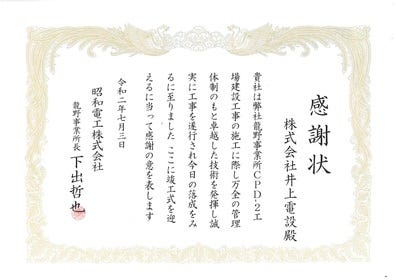 感謝状
株式会社井上電設殿
貴社は弊社龍野事業所CPD-2工
場建設工事の施工に際し万全の管理
体制のもと卓越した技術を発揮し誠
実に工事を遂行され今日の落成をみ
るに至りました ここに竣工式を迎
えるに当って感謝の意を表します
令和二年七月三日
昭和電工株式会社
龍野事業所長 下出哲也